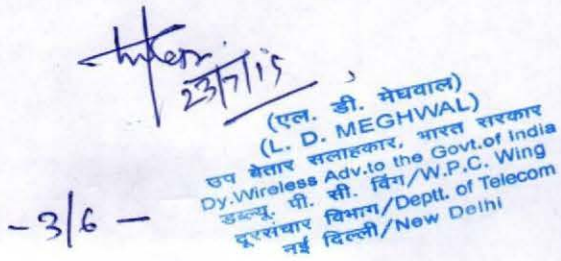 23/7/15
(एल. डी. मेघवाल)
(L. D. MEGHWAL)
उप बेतार सलाहकार, भारत सरकार
Dy.Wireless Adv.to the Govt.of India
डब्ल्यू. पी. सी. विंग/W.P.C. Wing
दूरसंचार विभाग/Deptt. of Telecom
नई दिल्ली/New Delhi
-3/6-